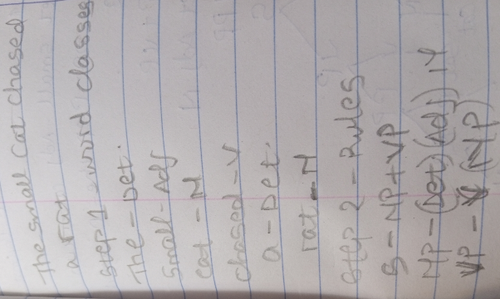 The small cat chased
a rat
step 1 word classes
The - Det.
small - Adj
cat - N
chased - V
a - Det.
rat - N
step 2 - Rules
S - NP + VP
NP - (Det) (Adj) N
VP - V (NP)